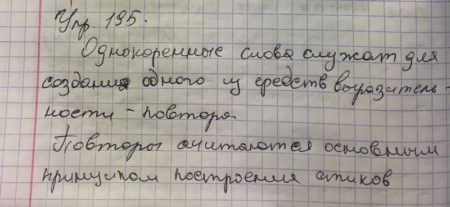 Упр. 195.
Однокоренные слова служат для
создания одного из средств выразитель-
ности - повтора.
Повторы считаются основным
принципом построения стихов